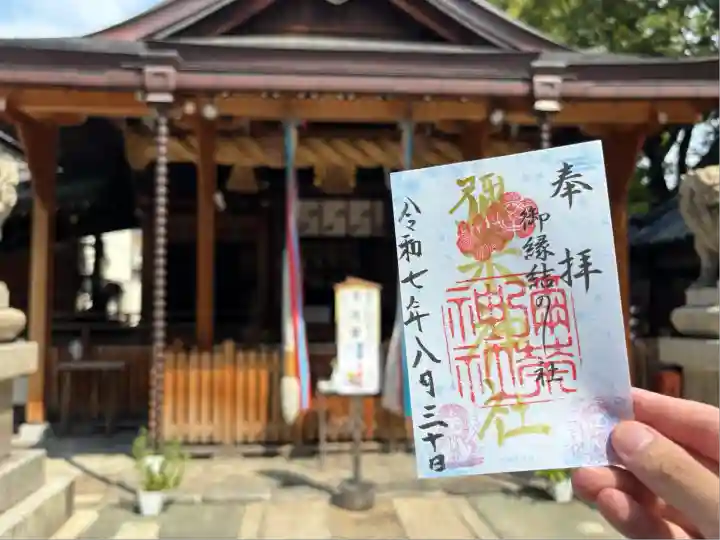 奉拝
御縁結の社
彌榮神社
令和七年八月三十日